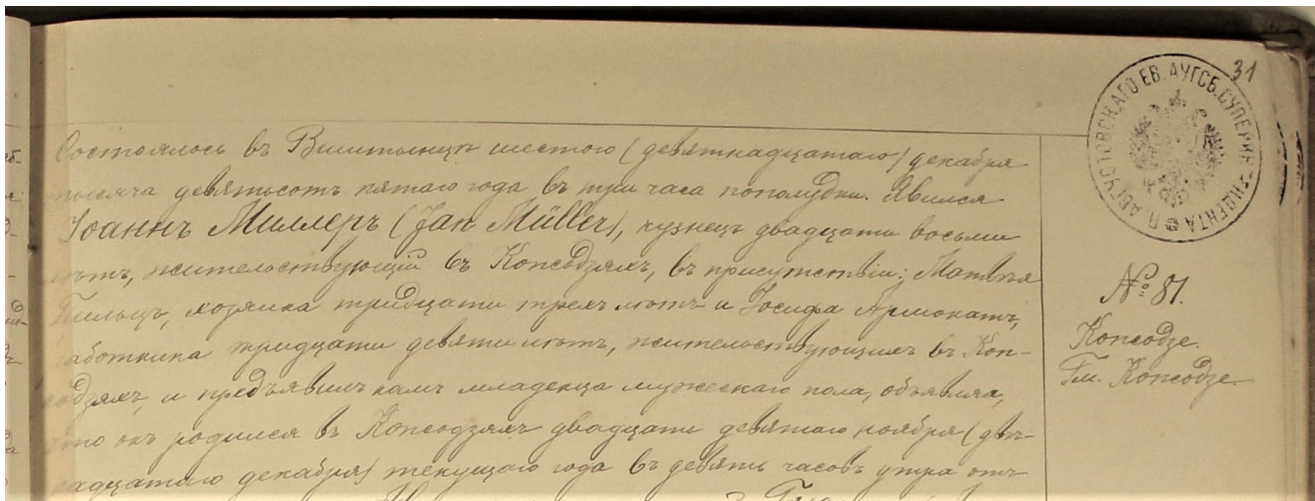 Состоялось въ Виштынцѣ шестого (девятнадцатаго) декабря
тысяча девятьсотъ пятаго года въ три часа пополудни. Явился
Іоаннъ Миллеръ (Jan Müller), кузнецъ двадцати восьми
лѣтъ, жительствующій въ Копсодзяхъ, въ присутствіи: Матвѣя
хозяина тридцати трехъ лѣтъ и Іосифа
работника тридцати девяти лѣтъ, жительствующихъ въ Коп-
содзяхъ, и предъявилъ намъ младенца мужескаго пола, объявляя,
что онъ родился въ Копсодзяхъ двадцать девятаго ноября (двѣ-
надцатаго декабря) текущаго года въ девять часовъ утра отъ
31
П. АВГУСТОВСКАГО ЕВ. АУГСБ. СУПЕРИНТЕНДЕНТА
№ 81.
Копсодзе.
Гм. Копсодзе